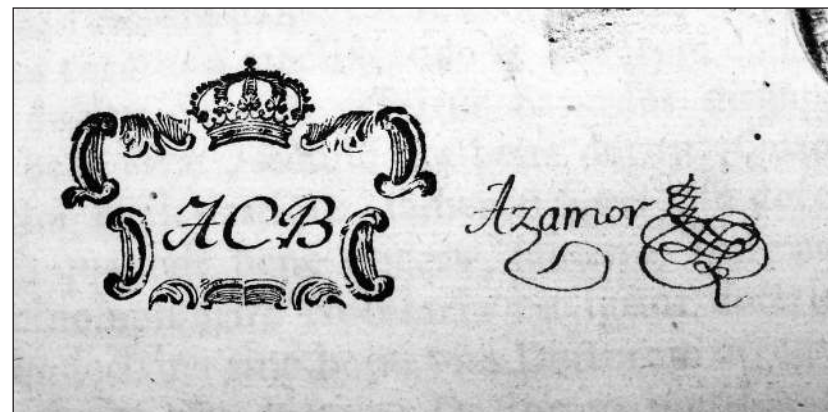 ACB
Azamor